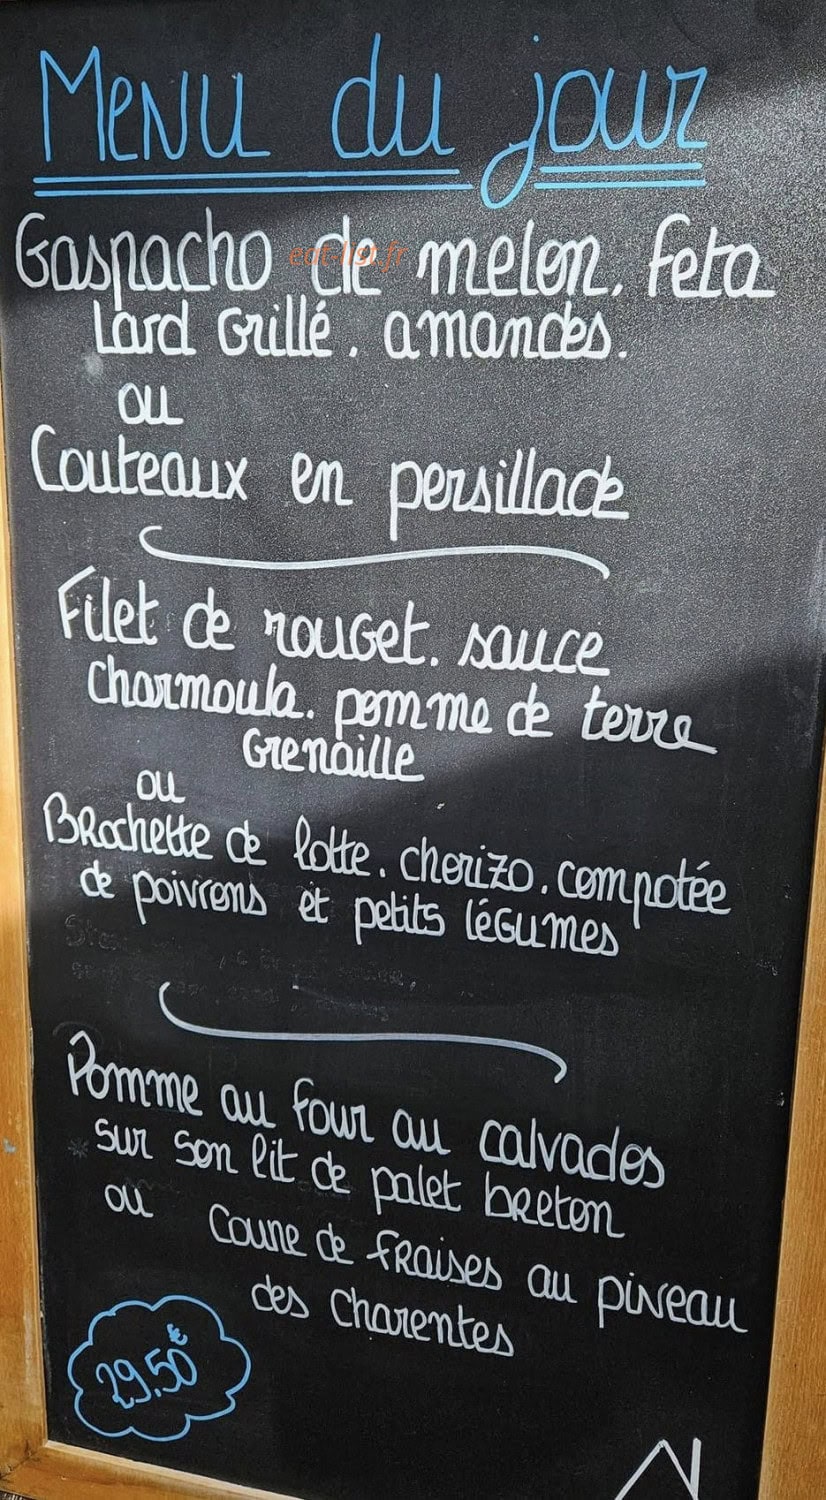 Menu du jour
Gaspacho de melon. feta
eat-list.fr
Lard Grillé. amandes.
ou
Couteaux en persillade
Filet de rouget. sauce
charmoula. pomme de terre
Grenaille
ou
Brochette de lotte. chorizo. compotée
de poivrons et petits légumes
Pomme au four au calvados
sur son lit de palet breton
ou Coupe de fraises au pineau
des Charentes
29.50 €